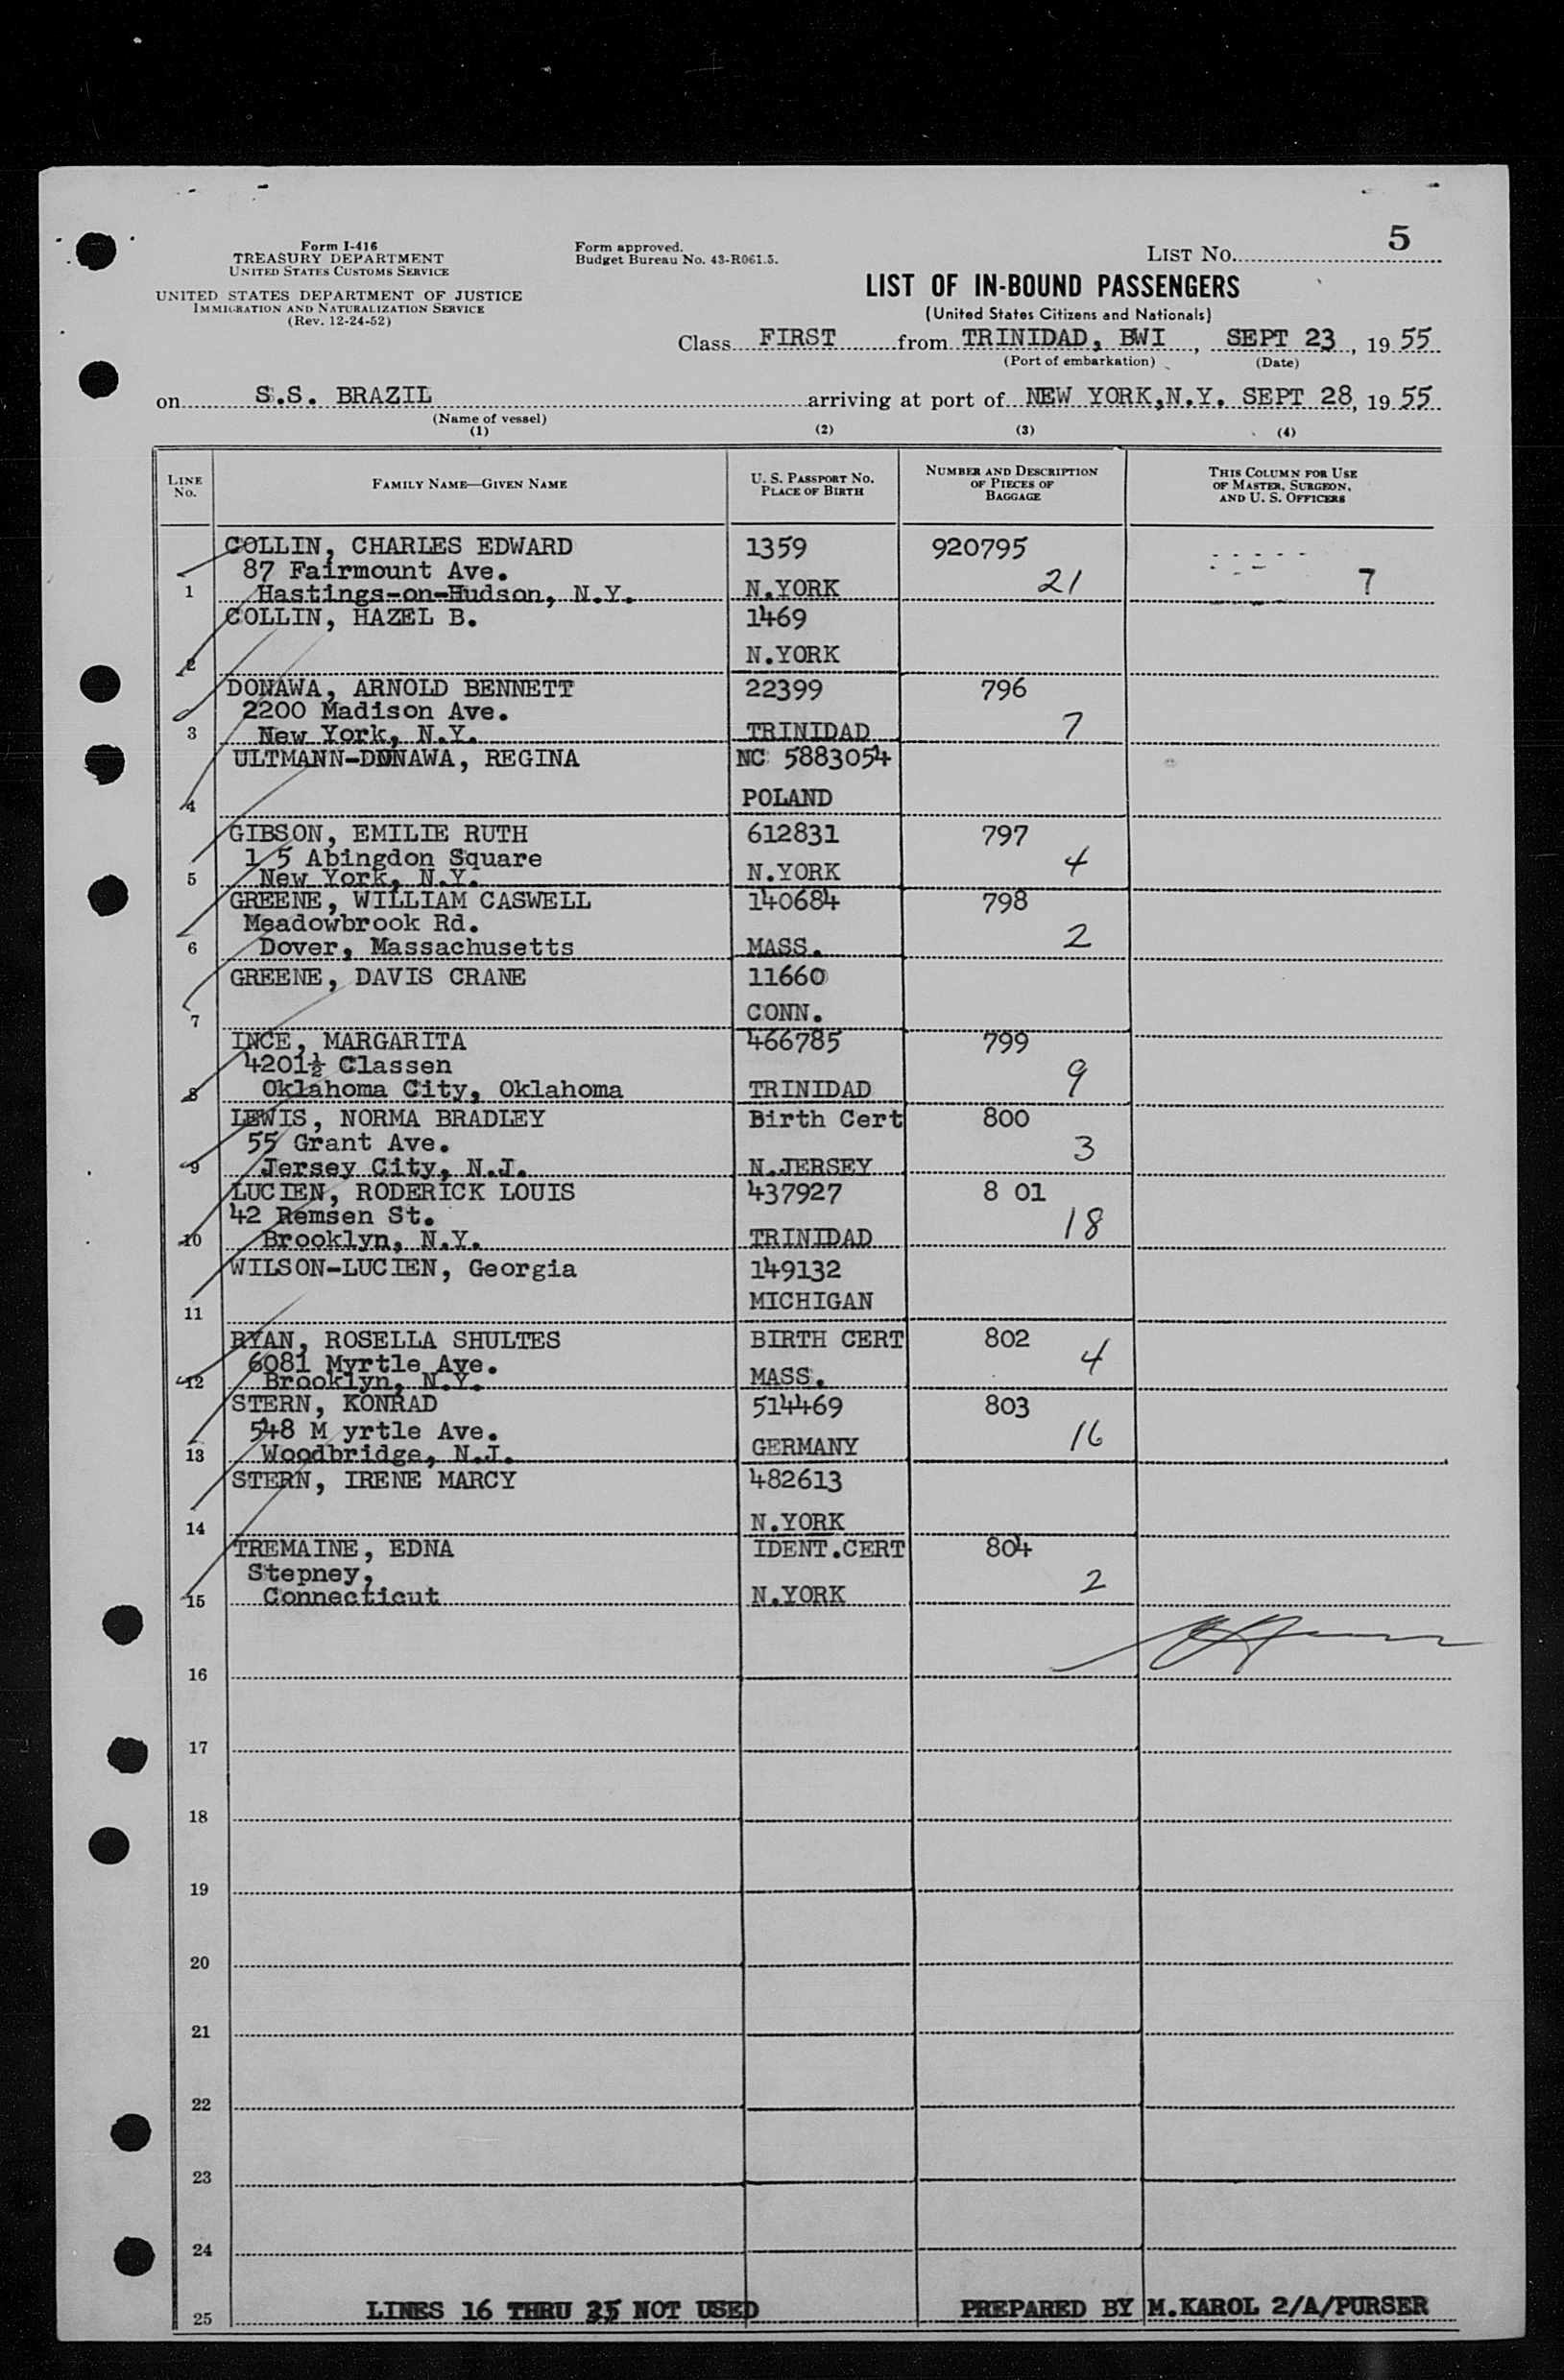 5
Form I-416
TREASURY DEPARTMENT
UNITED STATES CUSTOMS SERVICE
UNITED STATES DEPARTMENT OF JUSTICE
IMMIGRATION AND NATURALIZATION SERVICE
(Rev. 12-24-52)
Form approved.
Budget Bureau No. 43-R061.5.
LIST NO.
LIST OF IN-BOUND PASSENGERS
(United States Citizens and Nationals)
Class FIRST from TRINIDAD, BWI, SEPT 23, 1955
(Port of embarkation) (Date)
on S.S. BRAZIL arriving at port of NEW YORK,N.Y. SEPT 28, 1955
(Name of vessel)
(1) (2) (3) (4)
LINE NO. FAMILY NAME—GIVEN NAME U. S. PASSPORT NO. PLACE OF BIRTH NUMBER AND DESCRIPTION OF PIECES OF BAGGAGE THIS COLUMN FOR USE OF MASTER, SURGEON, AND U. S. OFFICERS
COLLIN, CHARLES EDWARD 1359 920795
87 Fairmount Ave.
1 Hastings-on-Hudson, N.Y. N.YORK 21 7
COLLIN, HAZEL B. 1469
2 N.YORK
DONAWA, ARNOLD BENNETT 22399 796
2200 Madison Ave.
3 New York, N.Y. TRINIDAD 7
ULTMANN-DONAWA, REGINA NC 5883054
4 POLAND
GIBSON, EMILIE RUTH 612831 797
1 5 Abingdon Square
5 New York, N.Y. N.YORK 4
GREENE, WILLIAM CASWELL 140684 798
Meadowbrook Rd.
6 Dover, Massachusetts MASS. 2
GREENE, DAVIS CRANE 11660
7 CONN.
INCE, MARGARITA 466785 799
4201½ Classen
8 Oklahoma City, Oklahoma TRINIDAD 9
LEWIS, NORMA BRADLEY Birth Cert 800
55 Grant Ave.
9 Jersey City, N.J. N.JERSEY 3
LUCIEN, RODERICK LOUIS 437927 8 01
42 Remsen St.
10 Brooklyn, N.Y. TRINIDAD 18
WILSON-LUCIEN, Georgia 149132
11 MICHIGAN
RYAN, ROSELLA SHULTES BIRTH CERT 802
6081 Myrtle Ave.
12 Brooklyn, N.Y. MASS. 4
STERN, KONRAD 514469 803
548 M yrtle Ave.
13 Woodbridge, N.J. GERMANY 16
STERN, IRENE MARCY 482613
14 N.YORK
TREMAINE, EDNA IDENT.CERT 804
Stepney,
15 Connecticut N.YORK 2
16
17
18
19
20
21
22
23
24
25 LINES 16 THRU 25 NOT USED PREPARED BY M.KAROL 2/A/PURSER